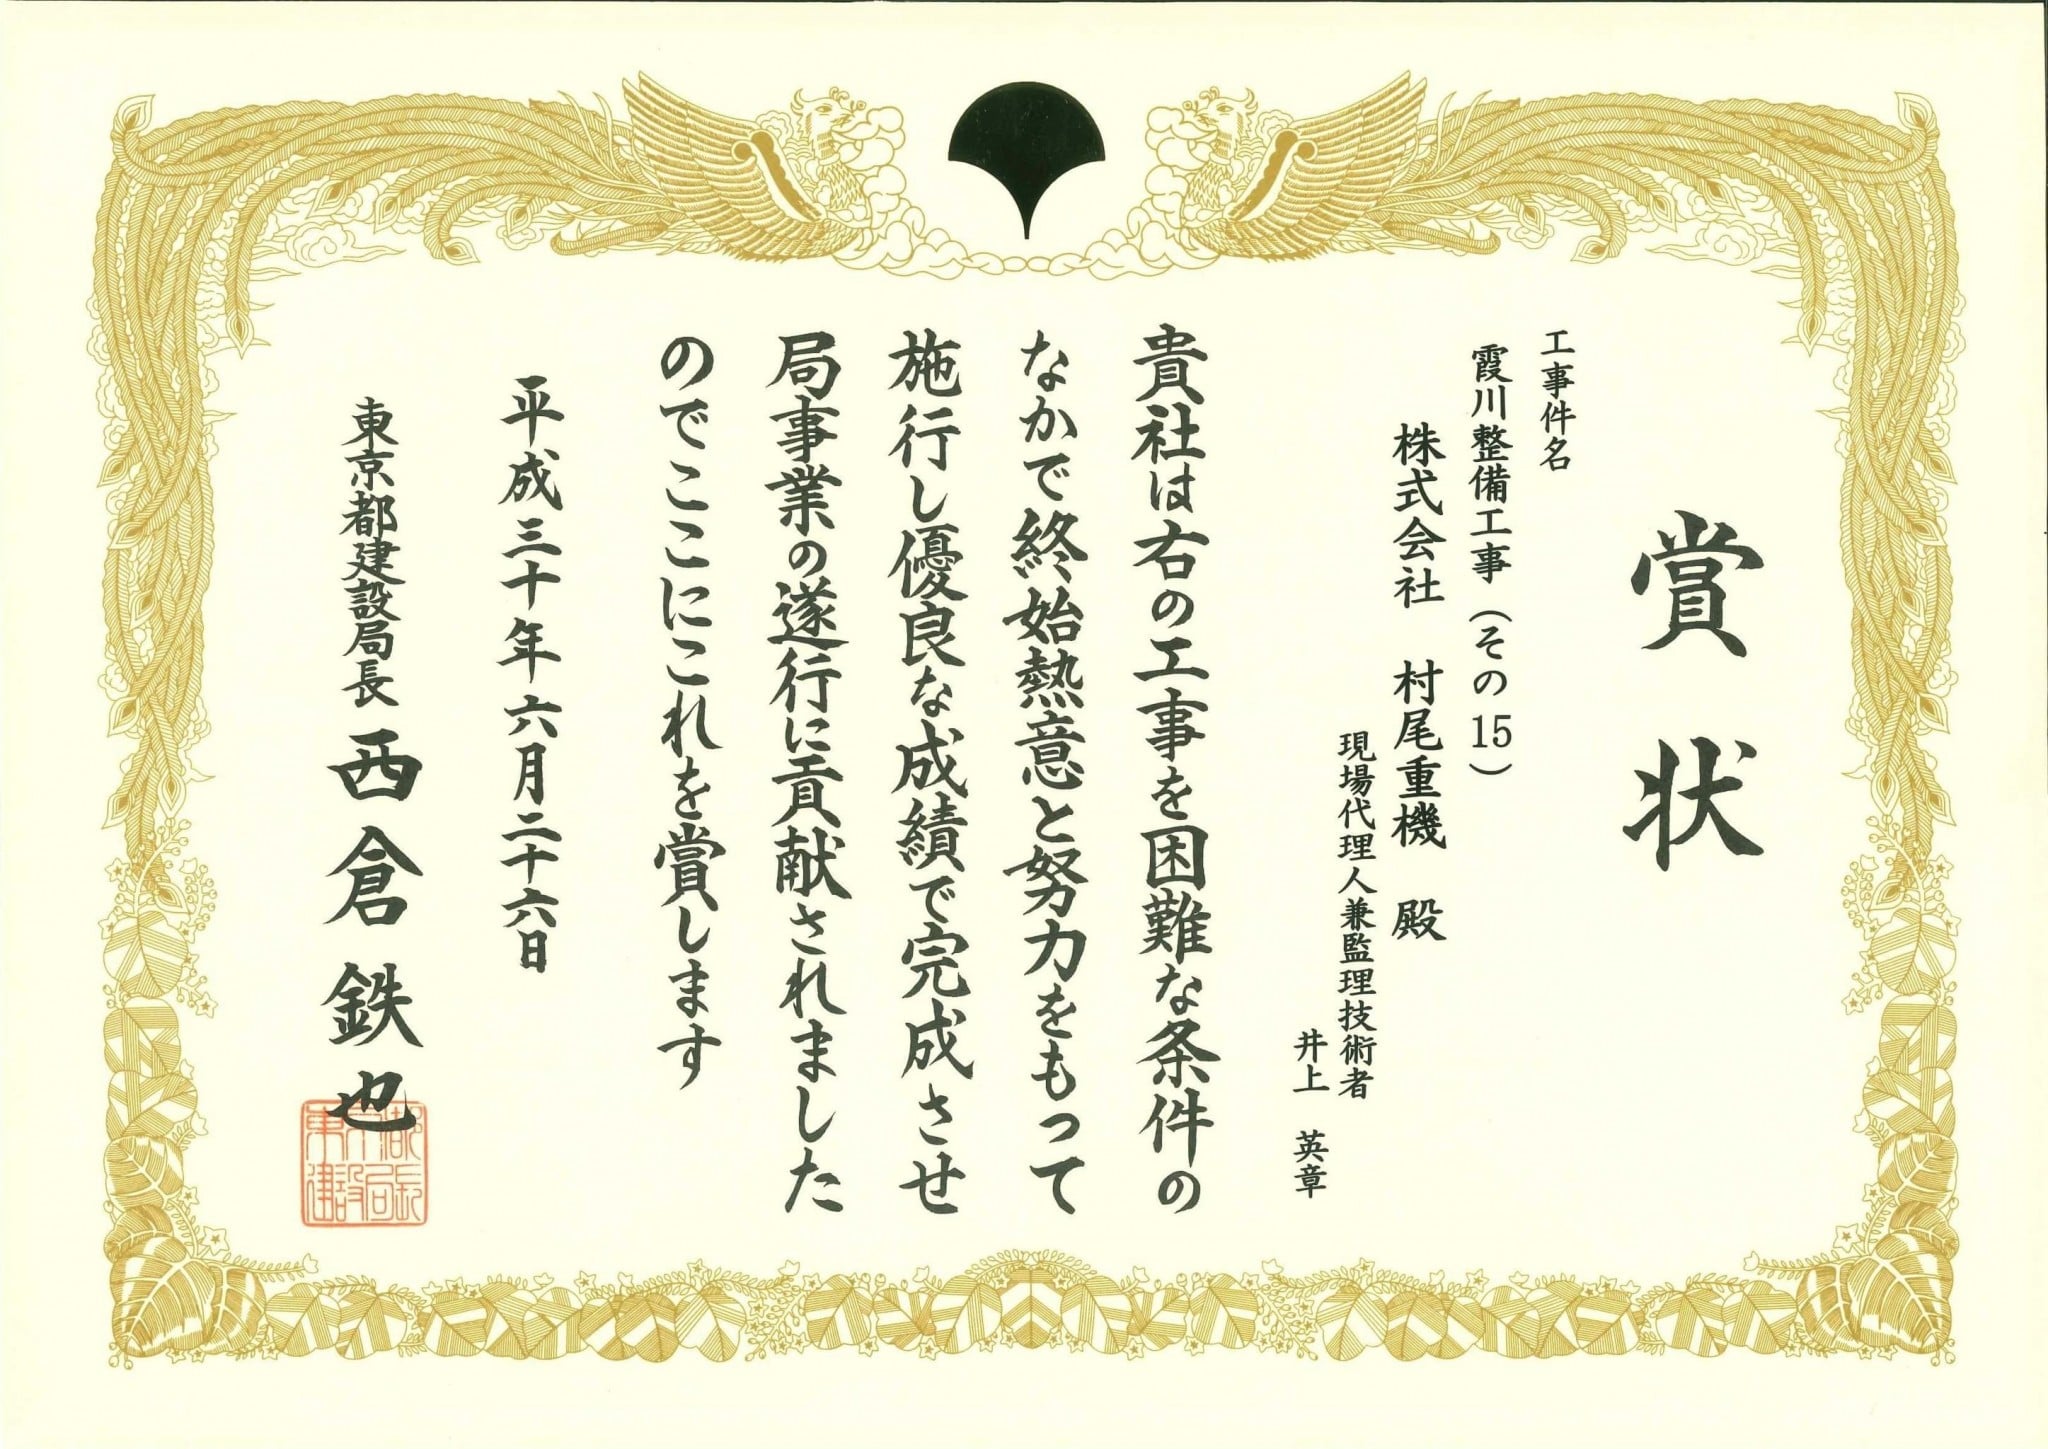 賞状
工事件名
霞川整備工事（その15）
株式会社 村尾重機 殿
現場代理人兼監理技術者
井上 英章
貴社は右の工事を困難な条件の
なかで終始熱意と努力をもって
施行し優良な成績で完成させ
局事業の遂行に貢献されました
のでここにこれを賞します
平成三十年六月二十六日
東京都建設局長 西倉鉄也
東京都建設局長